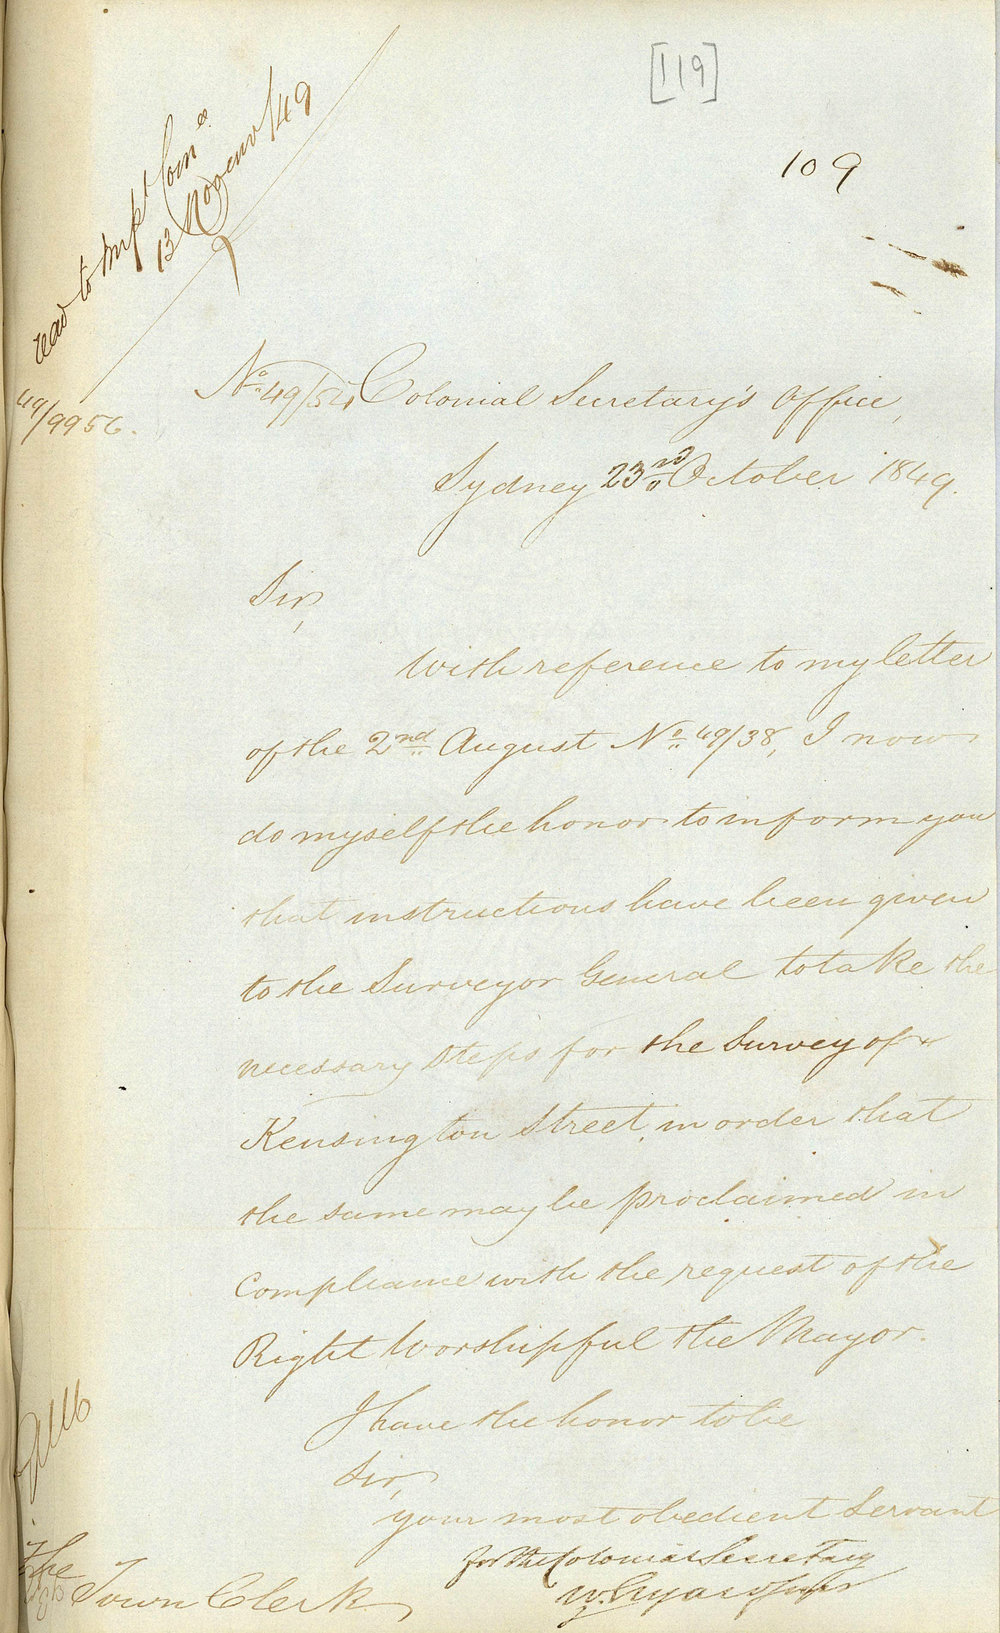 [119]
109
read to Impt Comee
13 Novemr/49
49/9956.
No 49/54, Colonial Secretary's Office,
Sydney 23rd October 1849.
Sir,
With reference to my letter
of the 2nd August No 49/38, I now
do myself the honor to inform you
that instructions have been given
to the Surveyor General to take the
necessary steps for the Survey of
Kensington Street, in order that
the same may be proclaimed in
compliance with the request of the
Right Worshipful the Mayor.
I have the honor to be
Sir,
your most obedient Servant
for the Colonial Secretary
W. Elyard Junr
The
Town Clerk